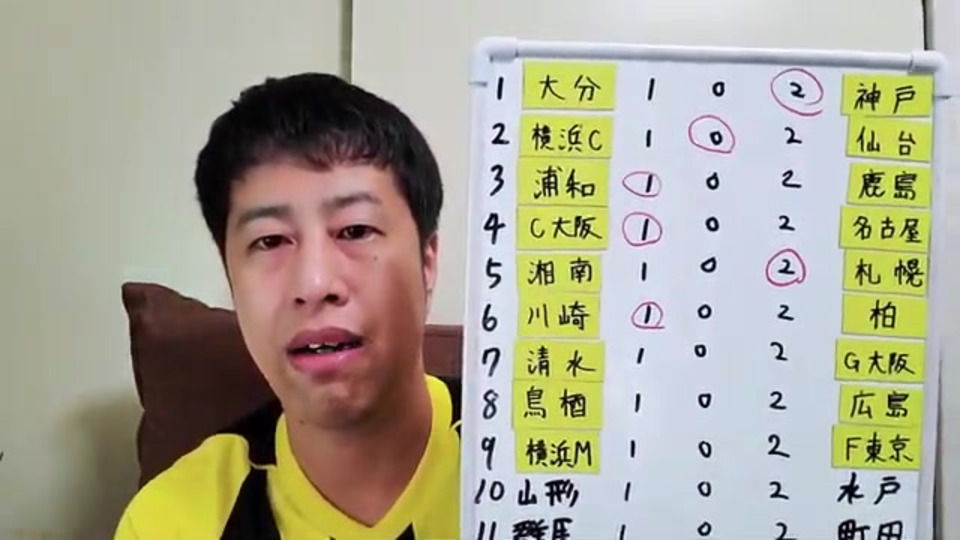 1 大分 1 0 2 神戸
2 横浜C 1 0 2 仙台
3 浦和 1 0 2 鹿島
4 C大阪 1 0 2 名古屋
5 湘南 1 0 2 札幌
6 川崎 1 0 2 柏
7 清水 1 0 2 G大阪
8 鳥栖 1 0 2 広島
9 横浜M 1 0 2 F東京
10 山形 1 0 2 水戸
11 群馬 1 0 2 町田